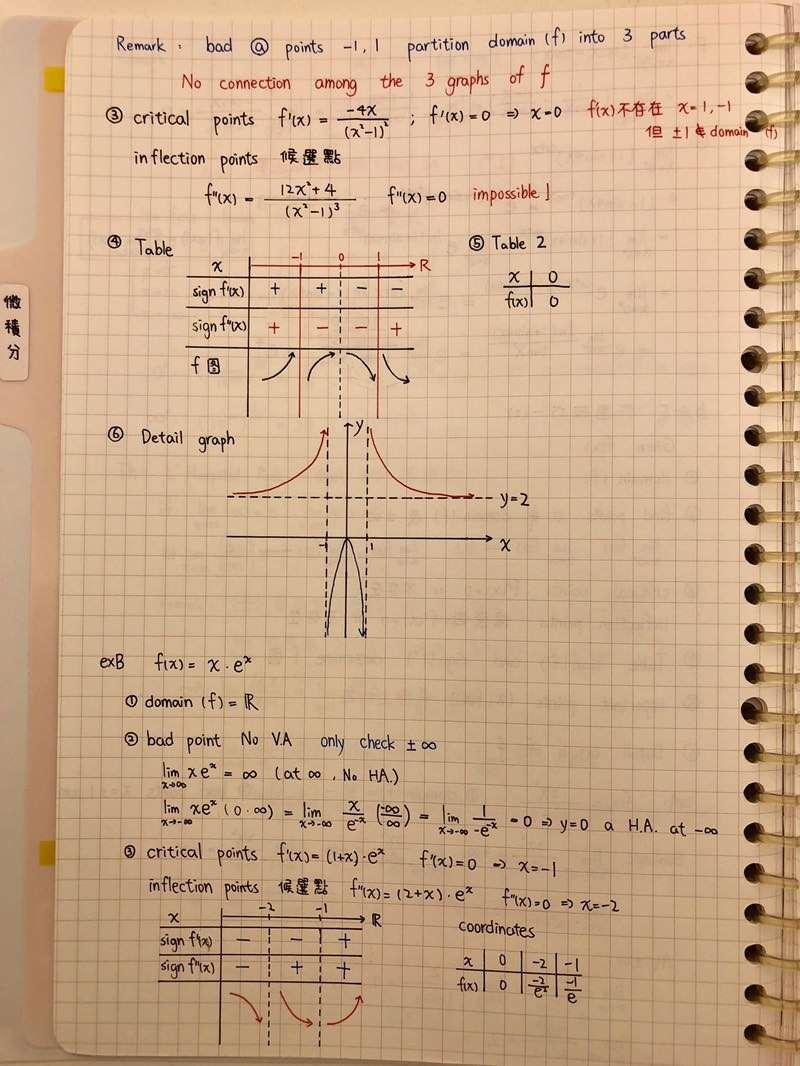 Remark : bad @ points -1, 1 partition domain (f) into 3 parts
No connection among the 3 graphs of f
③ critical points f'(x) = -4x / (x²-1)² ; f'(x)=0 ⇒ x=0 f(x)不存在 x=1,-1
但 ±1 ∉ domain (f)
inflection points 候選點
f"(x) = 12x²+4 / (x²-1)³ f"(x)=0 impossible!
④ Table
x -1 0 1 R
sign f'(x) + + - -
sign f"(x) + - - +
f 圖
⑤ Table 2
x 0
f(x) 0
⑥ Detail graph
y
y=2
-1 1 x
exB f(x) = x · eˣ
① domain (f) = ℝ
② bad point No V.A only check ±∞
lim x→∞ xeˣ = ∞ (at ∞, No HA.)
lim x→-∞ xeˣ (0·∞) = lim x→-∞ x/e⁻ˣ (-∞/∞) = lim x→-∞ 1/-e⁻ˣ = 0 ⇒ y=0 a H.A. at -∞
③ critical points f'(x) = (1+x)·eˣ f'(x)=0 ⇒ x=-1
inflection points 候選點 f"(x) = (2+x)·eˣ f"(x)=0 ⇒ x=-2
x -2 -1 ℝ
sign f'(x) - - +
sign f"(x) - + +
coordinates
x 0 -2 -1
f(x) 0 -2/e² -1/e
微積分